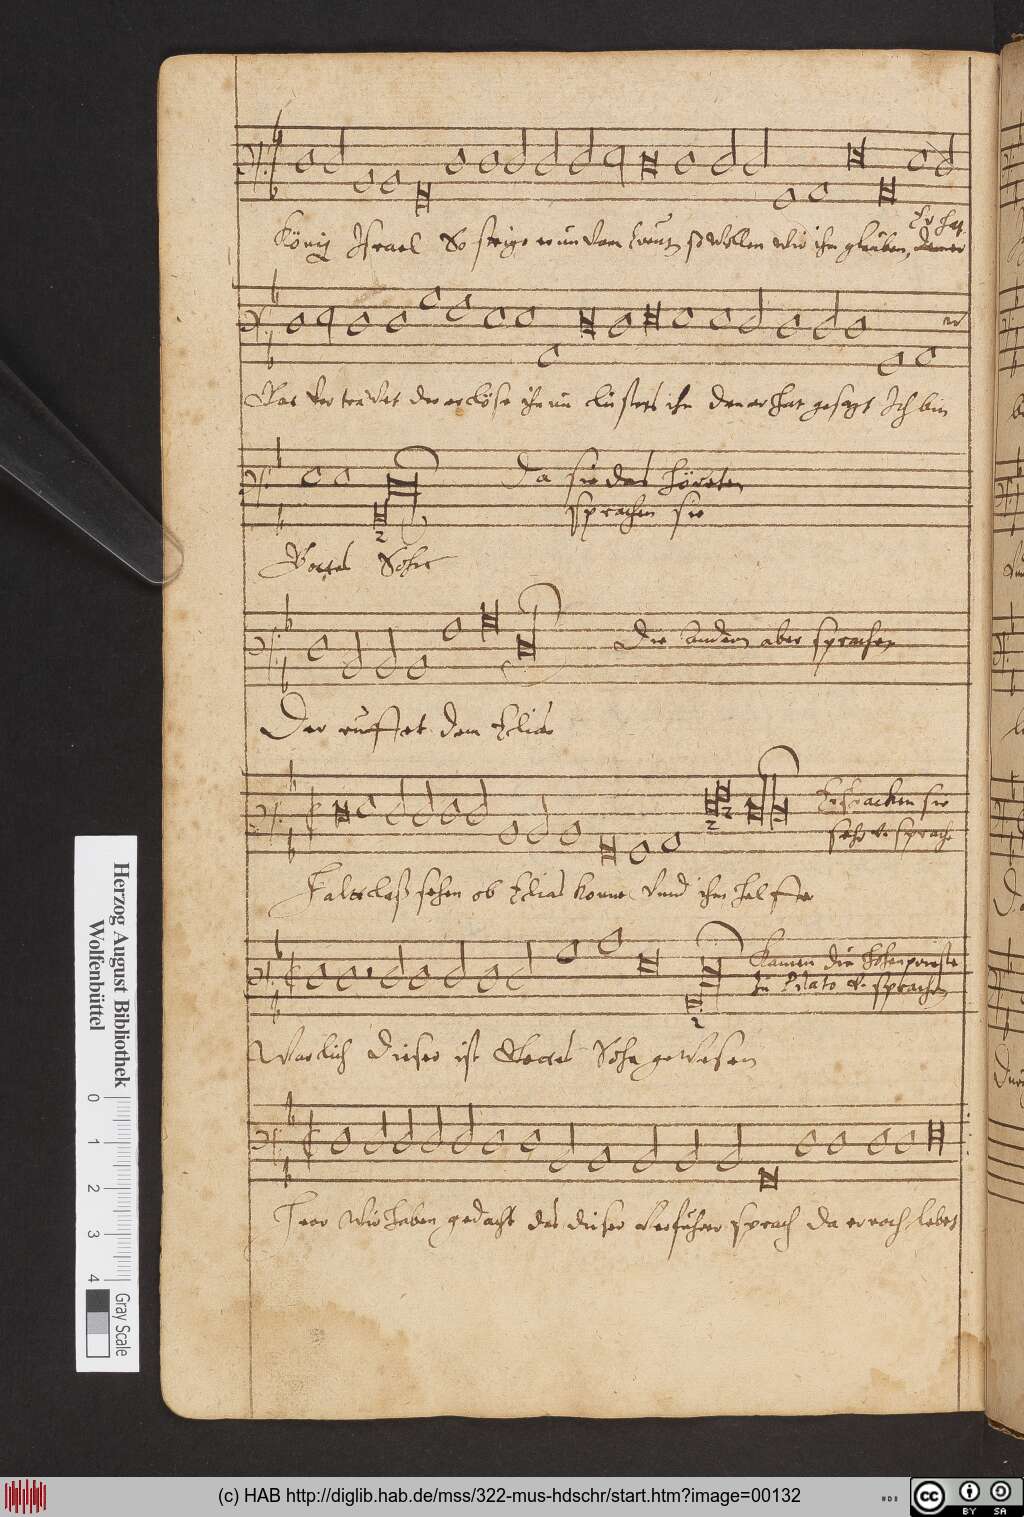 König Israel So steige er nun vom Creutz so wollen wir ihm glauben,
Er hat
Gott vertrawet der erlöse ihn nun lüstets ihn den er hat gesagt Ich bin
Da sie das höreten
sprachen sie
Gottes Sohn
Die andern aber sprachen
Der ruffet dem Elias
sie
sprach
Halt laß sehen ob Elias komme vnnd ihm helffe
Kamen die Hohenprieste
zu Pilato v. sprachen
Warlich dieser ist Gottes Sohn gewesen
Herr Wir haben gedacht das dieser Verführer sprach da er noch lebet
Herzog August Bibliothek
Wolfenbüttel
0 1 2 3 4
Gray Scale
(c) HAB http://diglib.hab.de/mss/322-mus-hdschr/start.htm?image=00132
cc BY SA